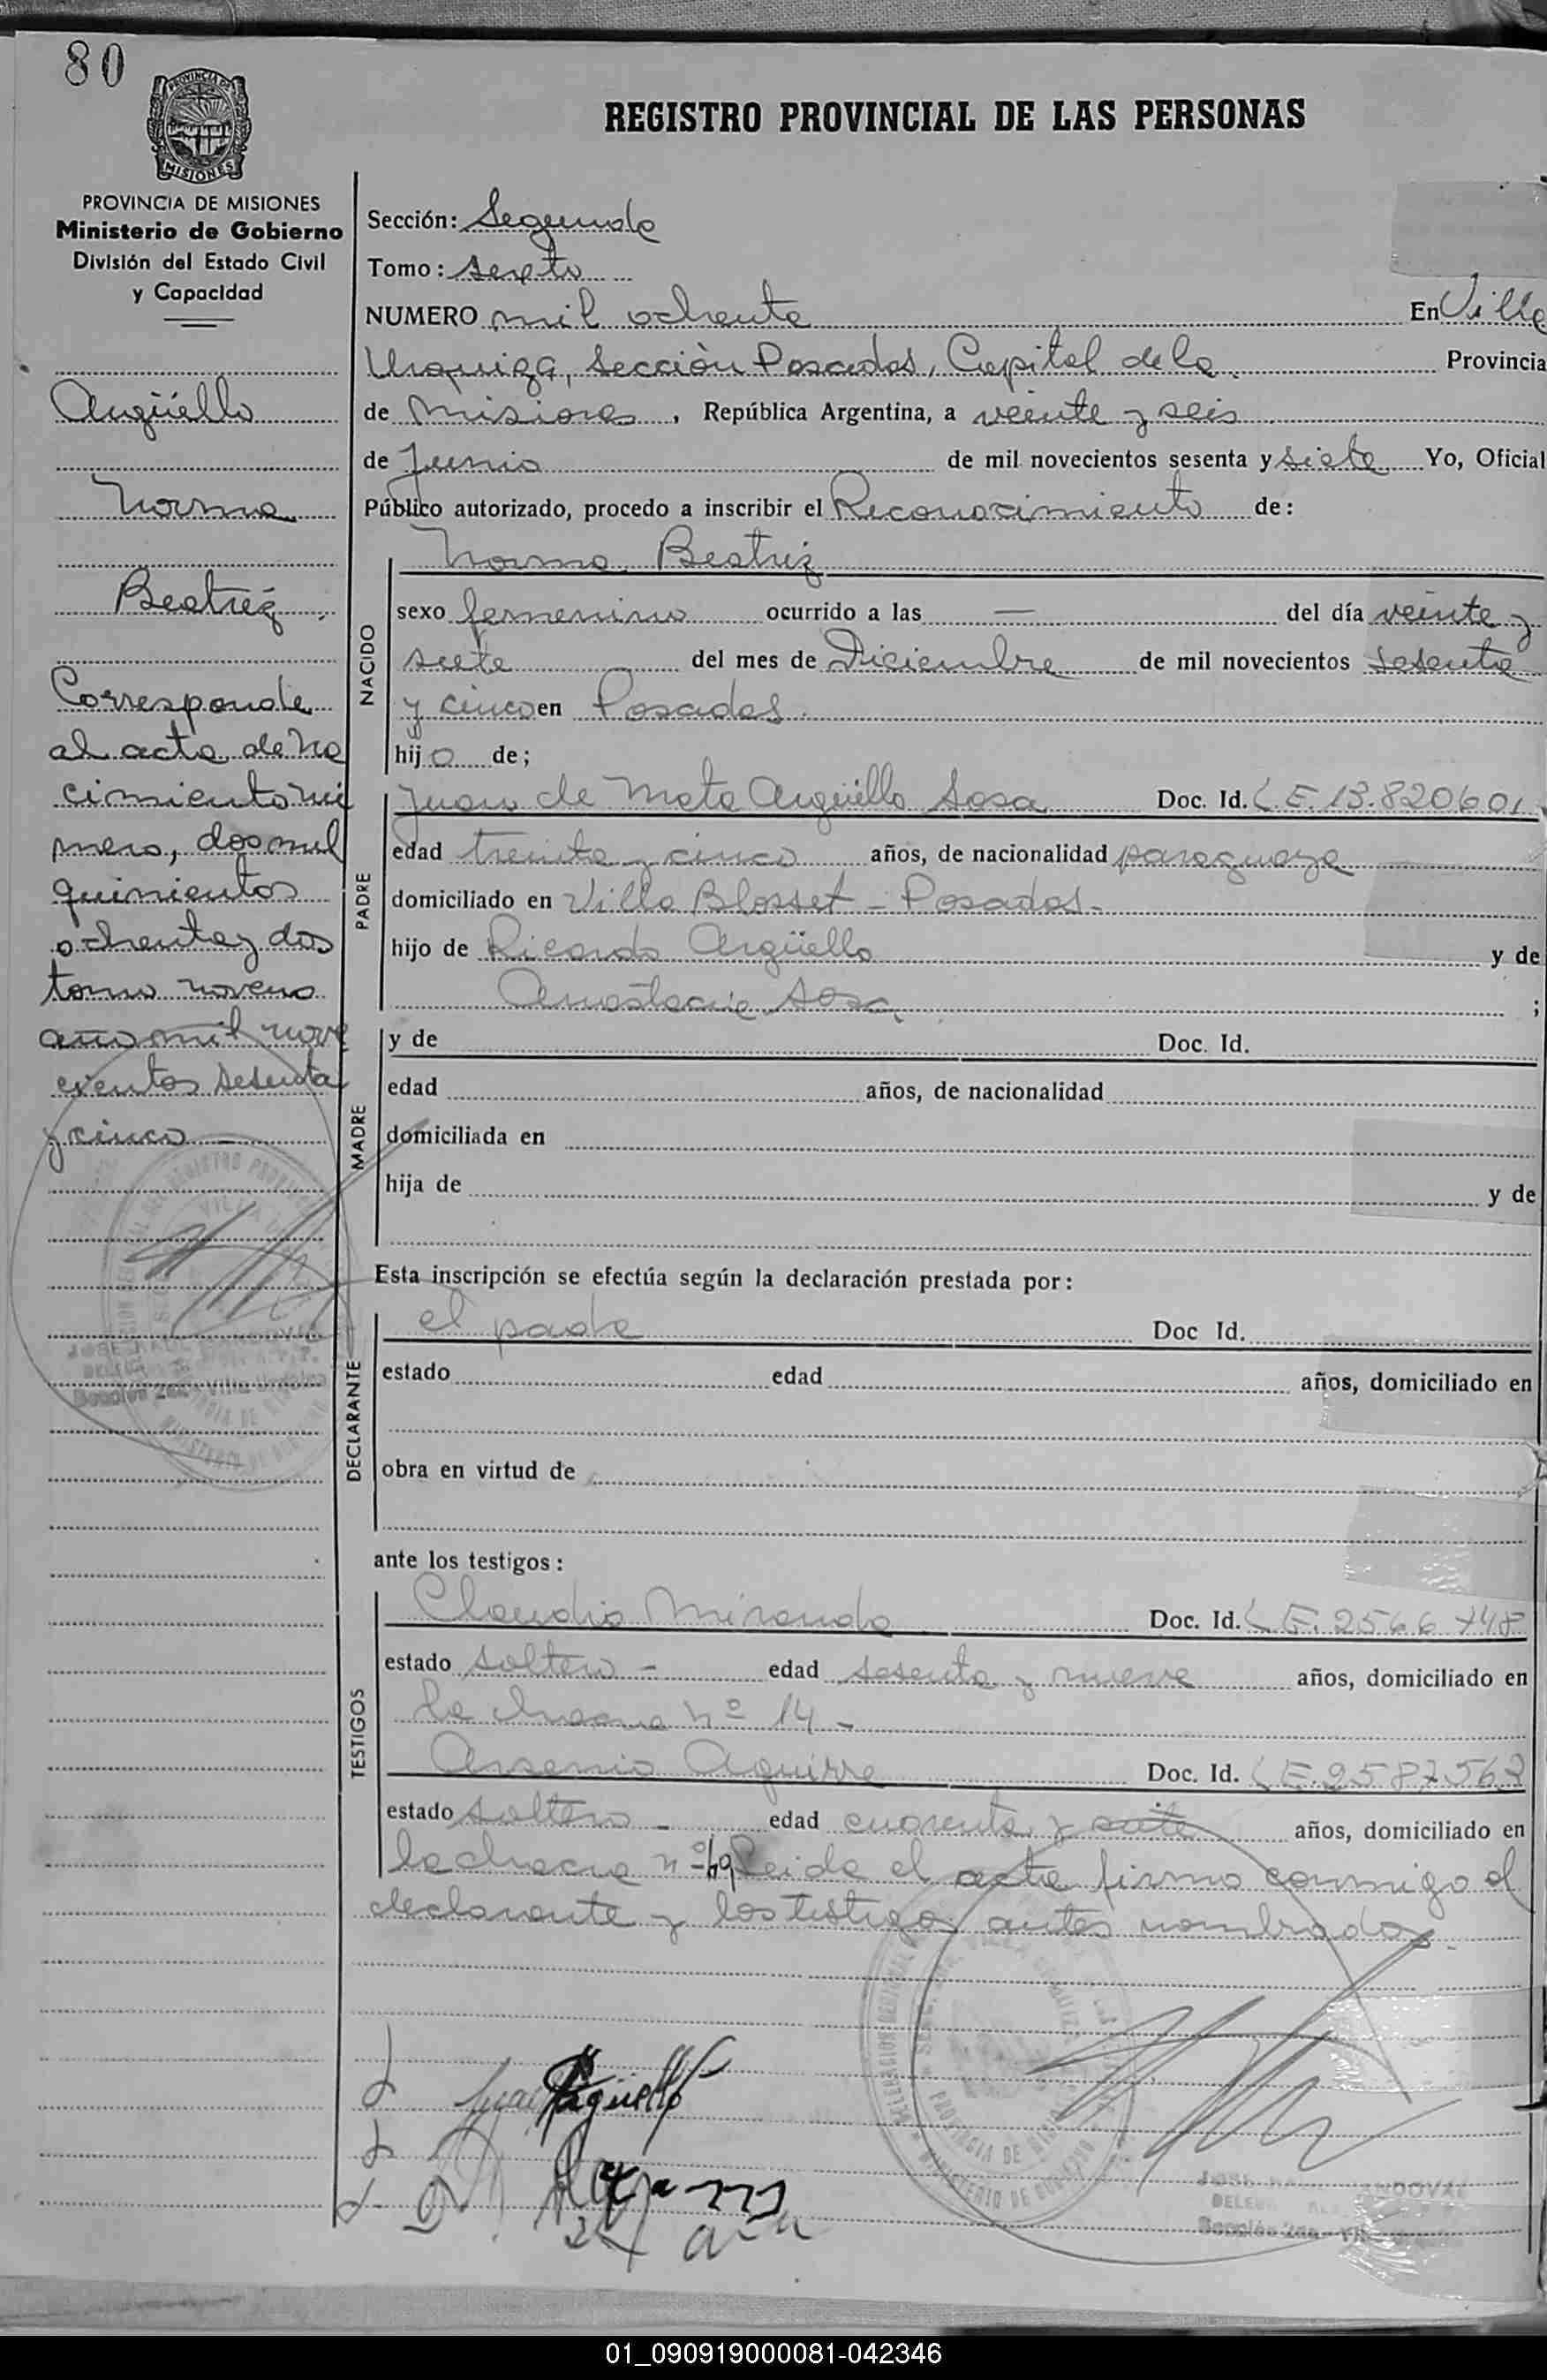 80
PROVINCIA DE
MISIONES
REGISTRO PROVINCIAL DE LAS PERSONAS
PROVINCIA DE MISIONES
Ministerio de Gobierno
División del Estado Civil
y Capacidad
Argüello
Norma
Beatriz
Corresponde
al acta de na
cimiento nú
mero, dos mil
quinientos
ochenta y dos
tomo noveno
año mil nove
cientos sesenta
y cinco
Sección: Segunda
Tomo: sexto
NUMERO mil ochenta En Villa
Urquiza, Sección Posadas, Capital de la Provincia
de Misiones, República Argentina, a veinte y seis
de Junio de mil novecientos sesenta y siete Yo, Oficial
Público autorizado, procedo a inscribir el Reconocimiento de:
NACIDO
Norma Beatriz
sexo femenino ocurrido a las — del día veinte y
siete del mes de Diciembre de mil novecientos sesenta
y cinco en Posadas.
hijo de;
PADRE
Juan de Mata Argüello Sosa Doc. Id. L E. 13.820601
edad treinta y cinco años, de nacionalidad paraguaya
domiciliado en Villa Blosset - Posadas-
hijo de Ricardo Argüello y de
Anastacia Sosa ;
MADRE
y de Doc. Id.
edad años, de nacionalidad
domiciliada en
hija de y de
Esta inscripción se efectúa según la declaración prestada por:
DECLARANTE
el padre Doc Id.
estado edad años, domiciliado en
obra en virtud de
ante los testigos:
TESTIGOS
Claudio Miranda Doc. Id. L E. 2566748
estado soltero - edad sesenta y nueve años, domiciliado en
la chacra nº 14 -
Arsenio Aguirre Doc. Id. L E. 2587563
estado soltero - edad cuarenta y siete años, domiciliado en
la chacra nº Leida el acta firma conmigo el
declarante y los testigos antes nombrados.
Argüello
01_090919000081-042346